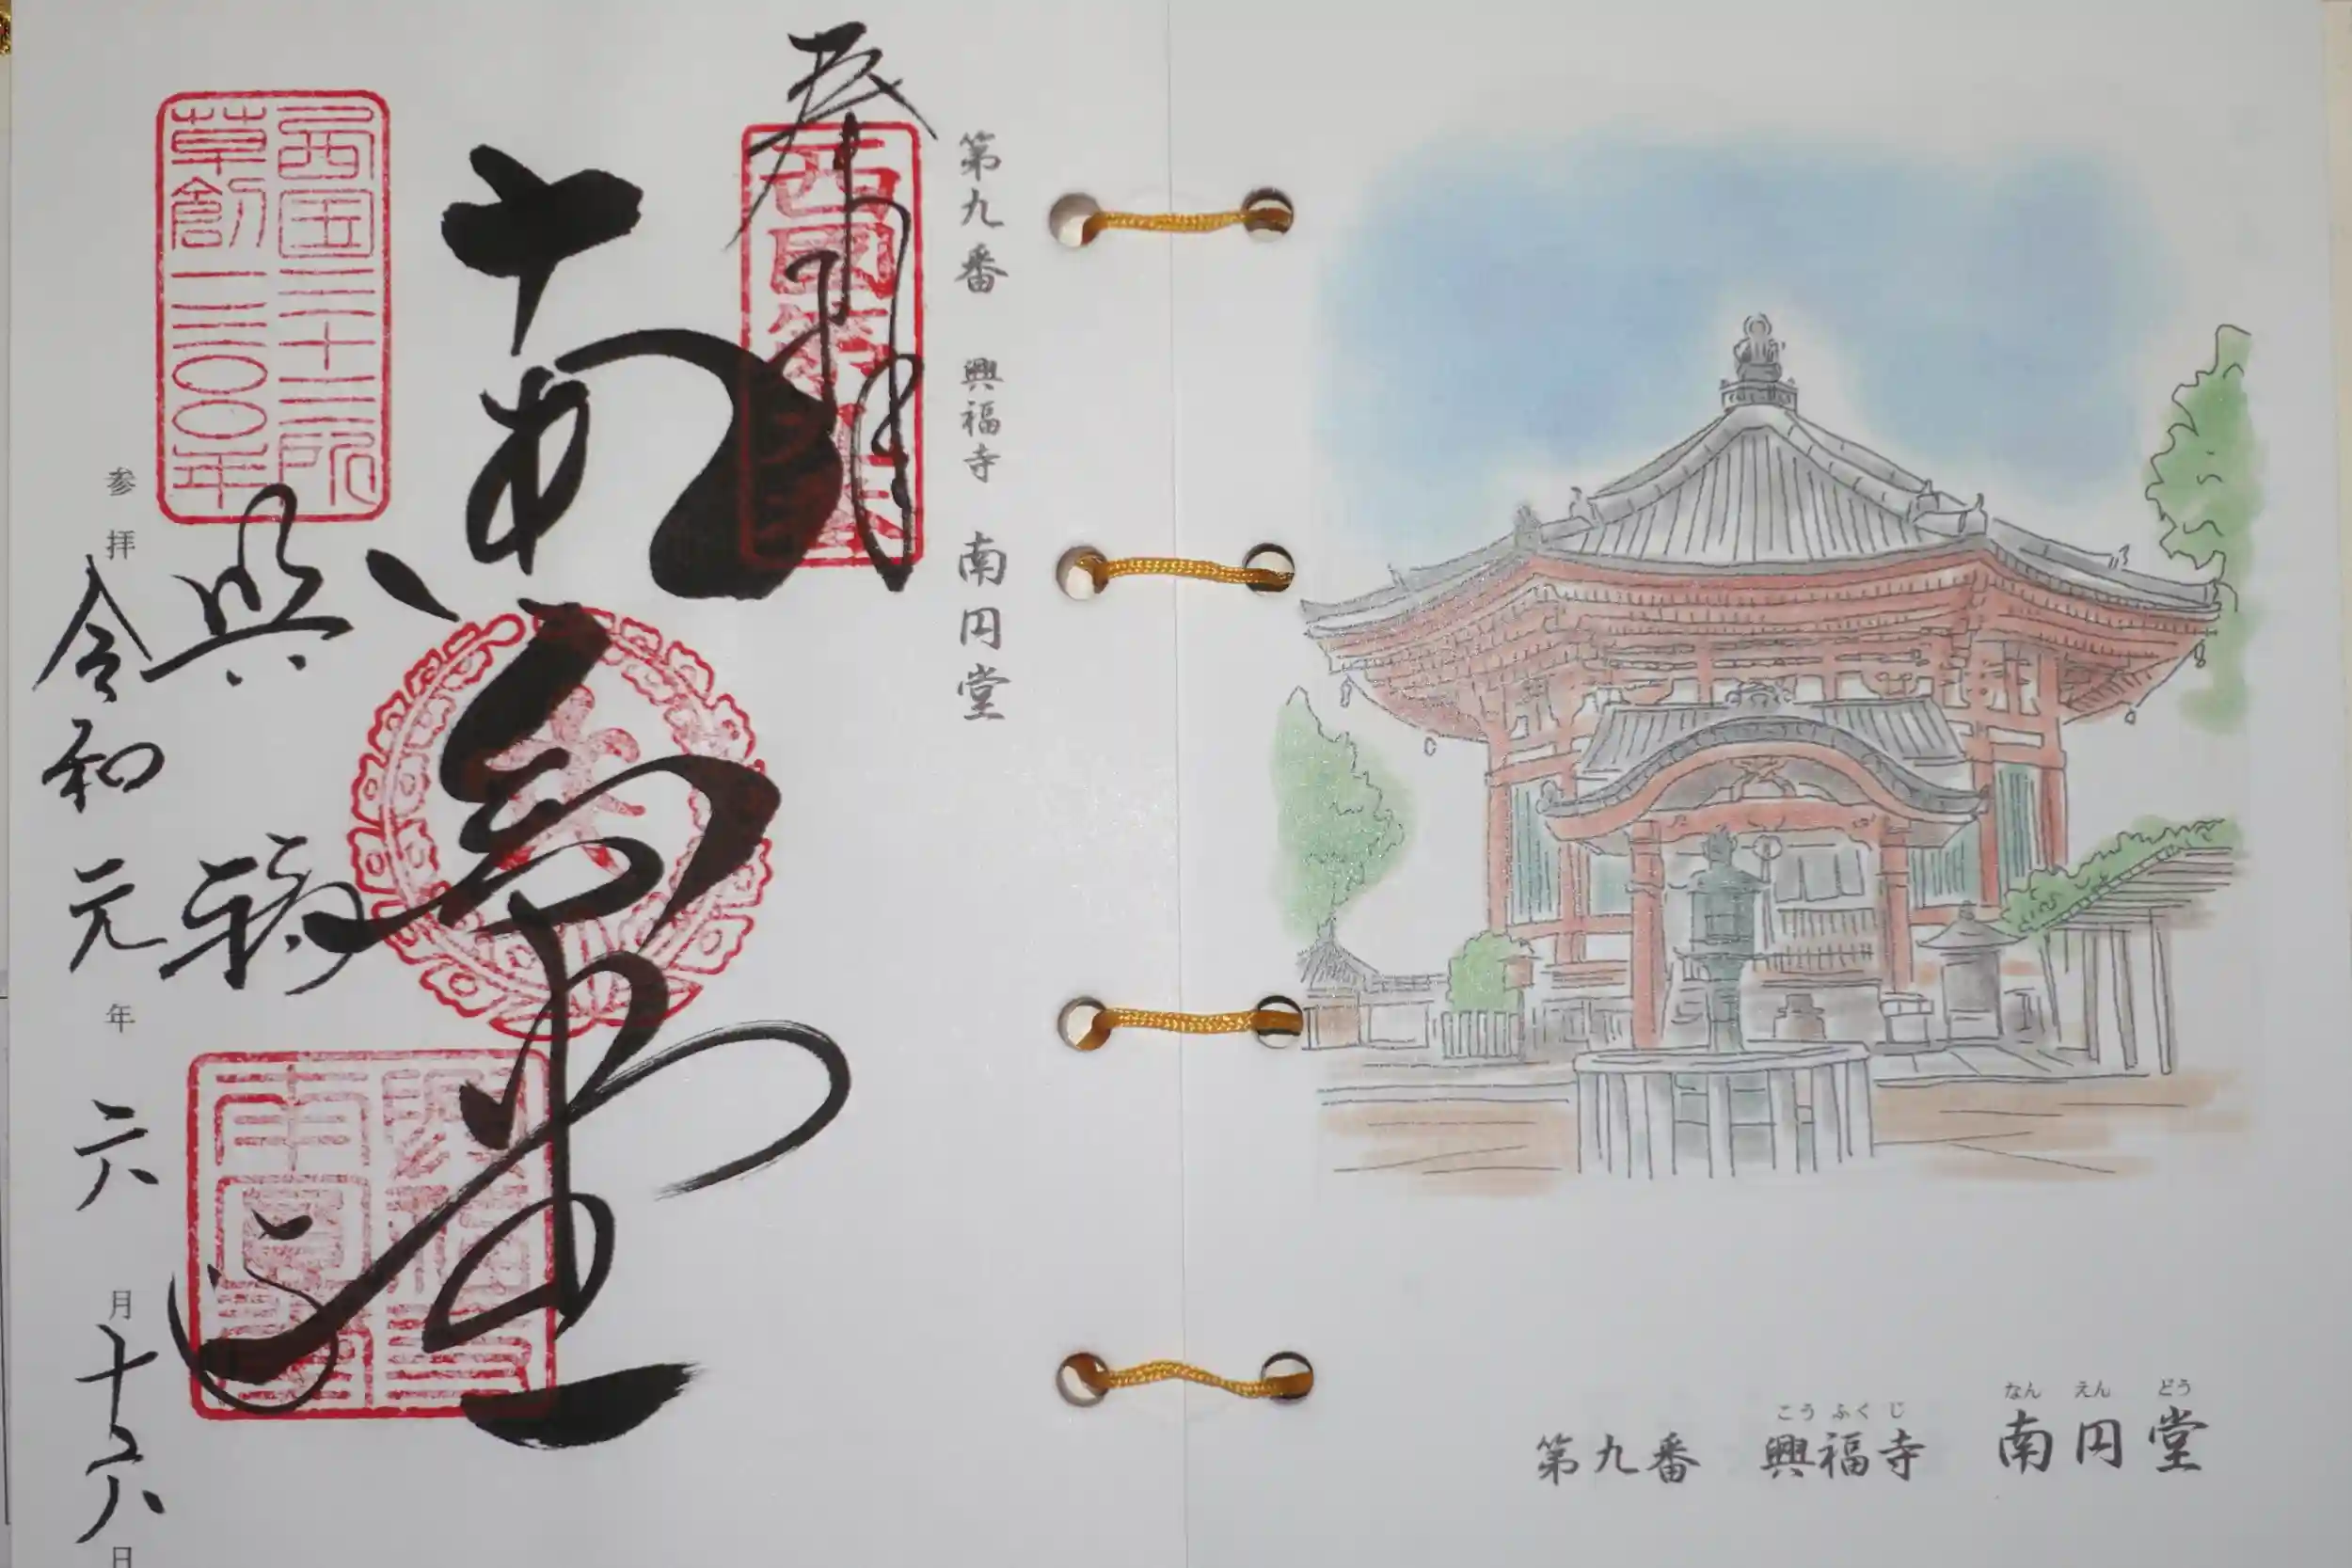 第九番 興福寺 南円堂
奉拝
西國第九番
南円堂
西国三十三所
草創一三〇〇年
興福寺
参拝 令和元年六月十六日
なん えん どう
こう ふく じ
第九番 興福寺 南円堂